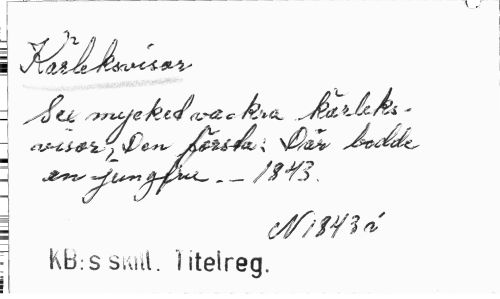 Kärleksvisor
Sex mycked vackra kärleks-
visor, Den första: Där bodde
en jungfru. — 1843.
N 1843 i
KB:s skill. Titelreg.